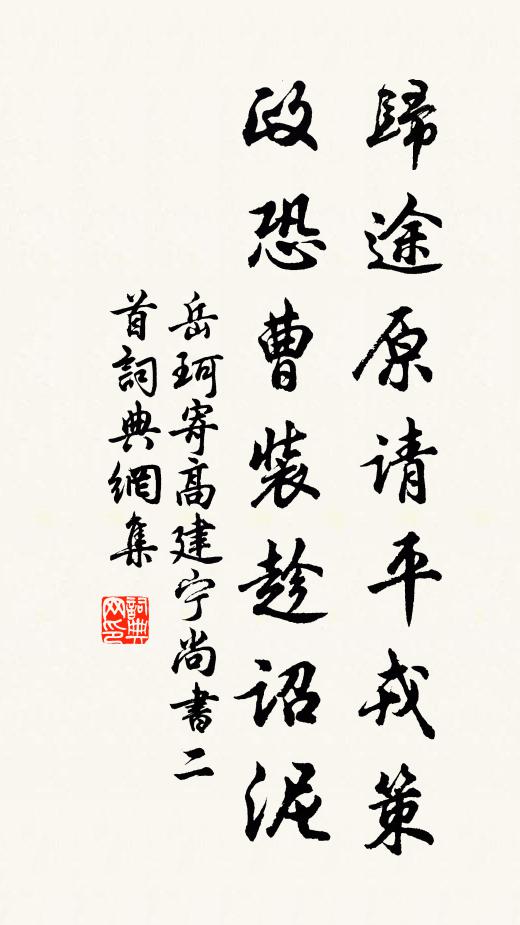 歸途原请平戎策
政恐曹裝趁詔泥
岳珂寄高建宁尚書二
首詞典網集
詞典網印